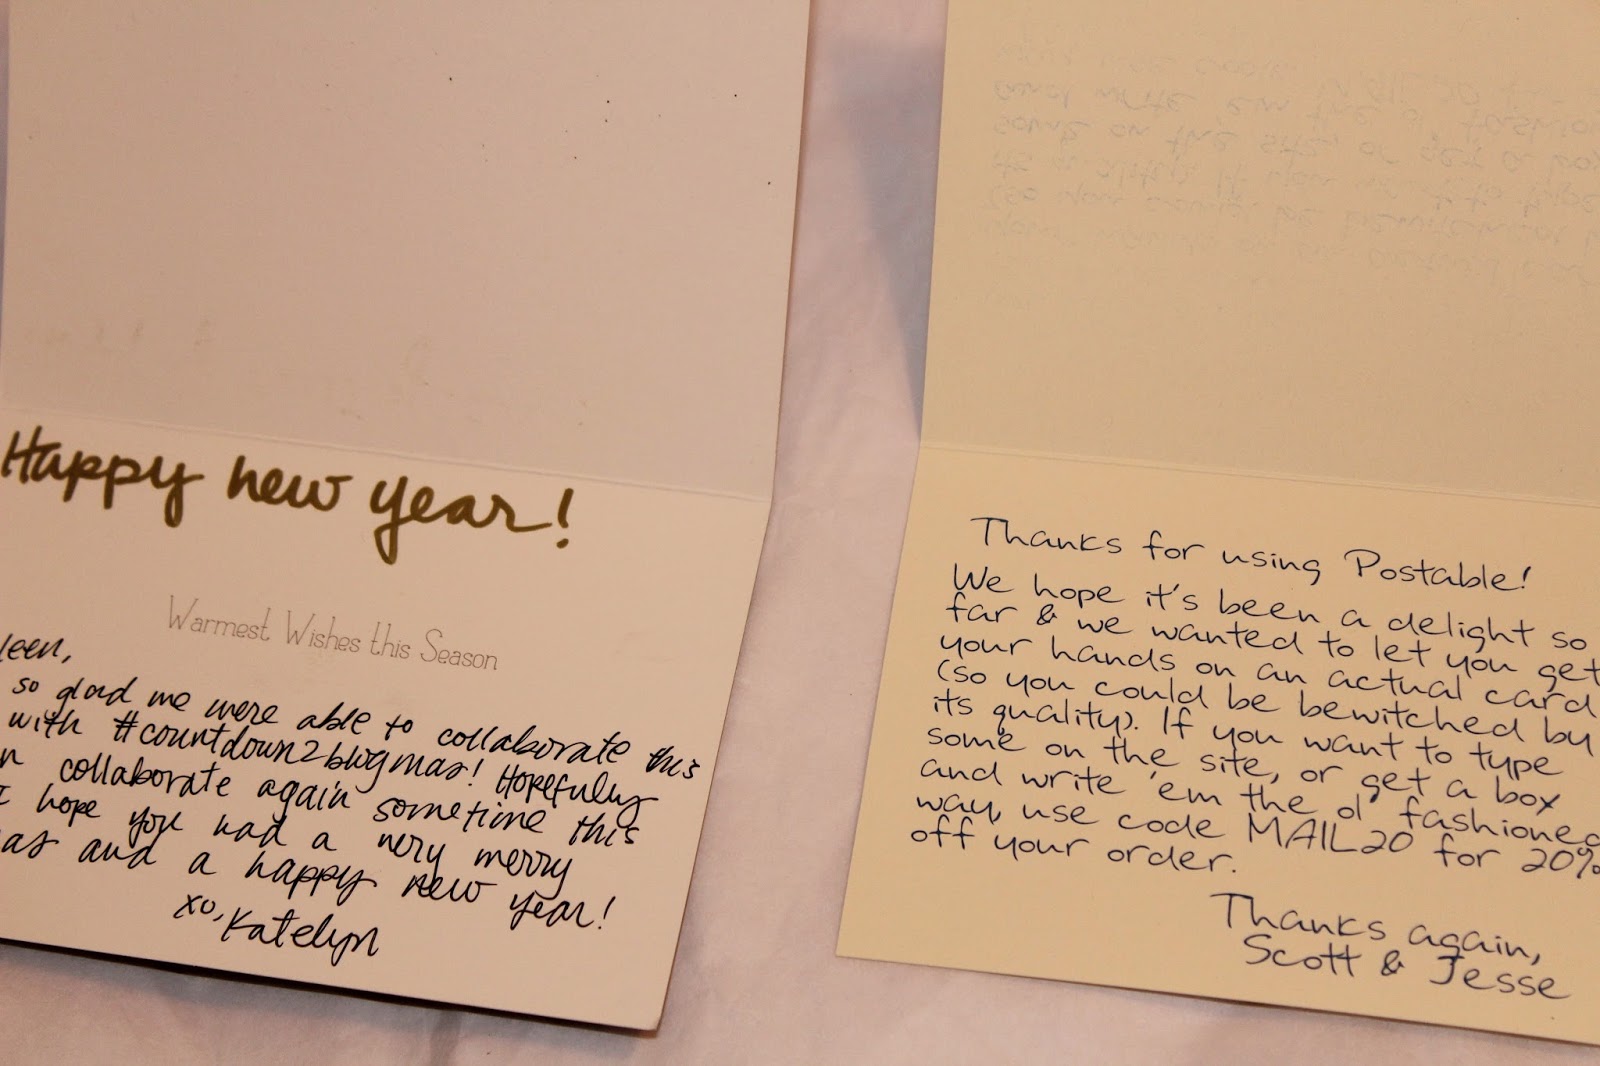 Happy new year!
Warmest Wishes this Season
leen,
so glad we were able to collaborate this
with #countdown2blogmas! Hopefully
n collaborate again sometime this
I hope you had a very merry
as and a happy new year!
xo, Katelyn
Thanks for using Postable!
We hope it's been a delight so
far & we wanted to let you get
your hands on an actual card
(so you could be bewitched by
its quality). If you want to type
some on the site, or get a box
and write 'em the ol' fashioned
way, use code MAIL20 for 20%
off your order.
Thanks again,
Scott & Jesse